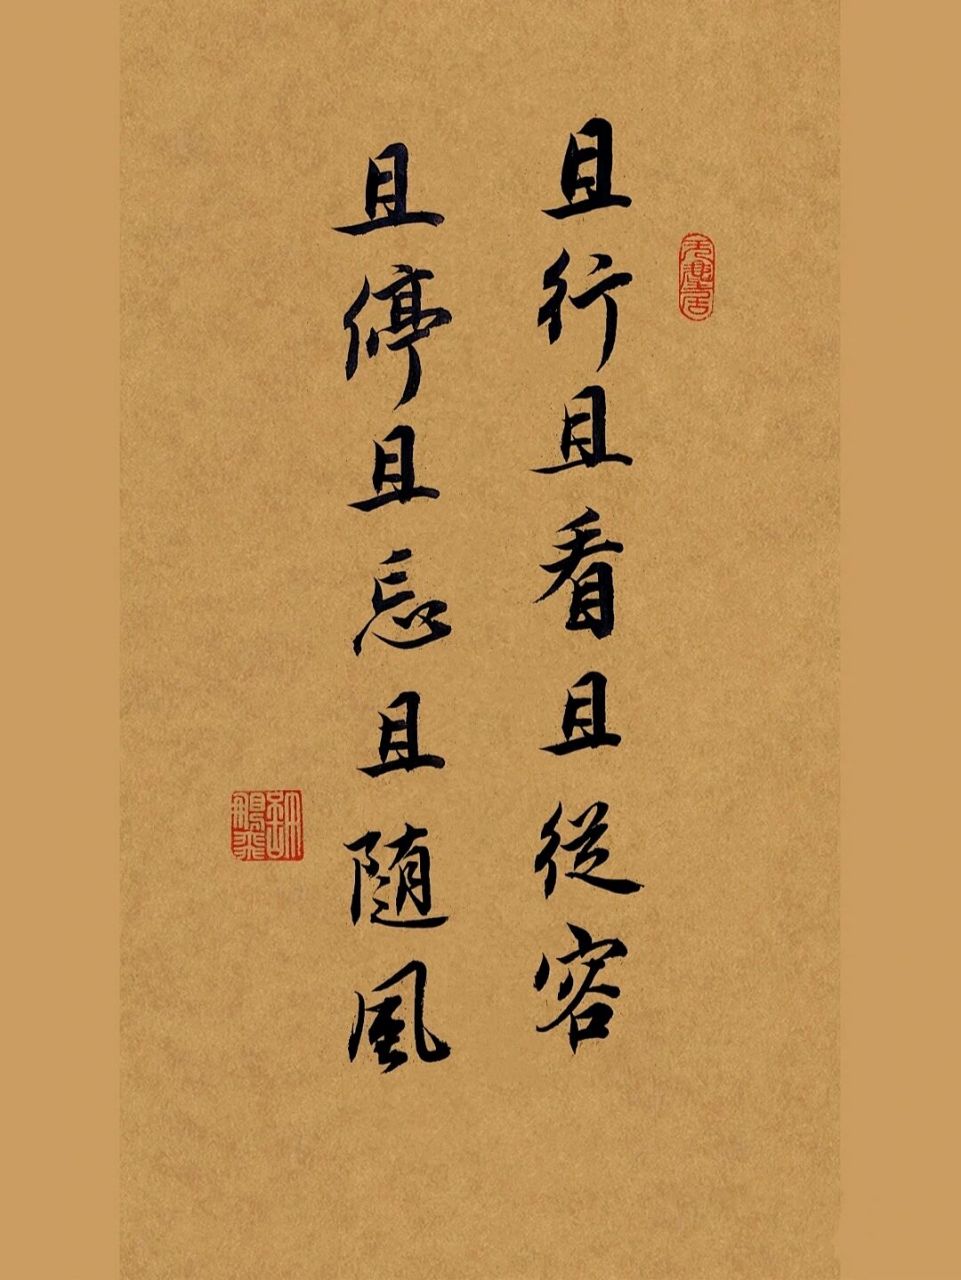 且行且看且從容
且停且忘且随風